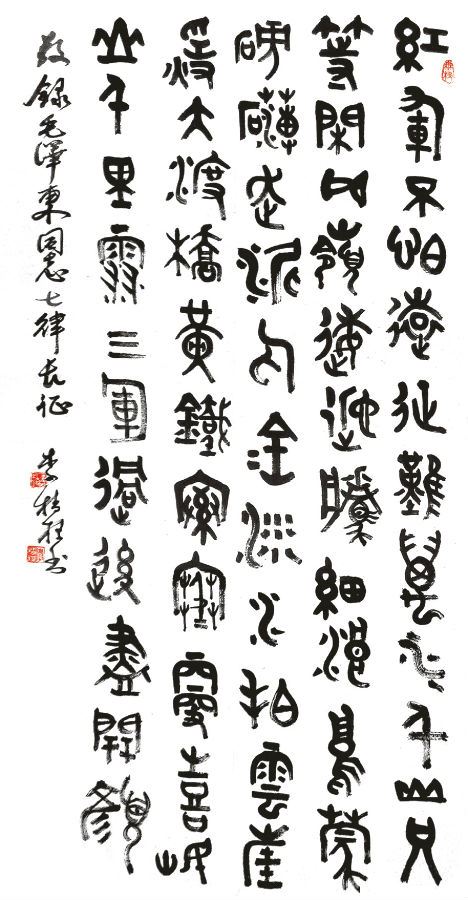 紅軍不怕遠征難萬水千山只
等閑五嶺逶迤騰細浪烏蒙
磅礴走泥丸金沙水拍雲崖
煖大渡橋黃鐵索寒更喜岷
山千里雪三軍過後盡開顏
敬錄毛澤東同志七律長征 李书